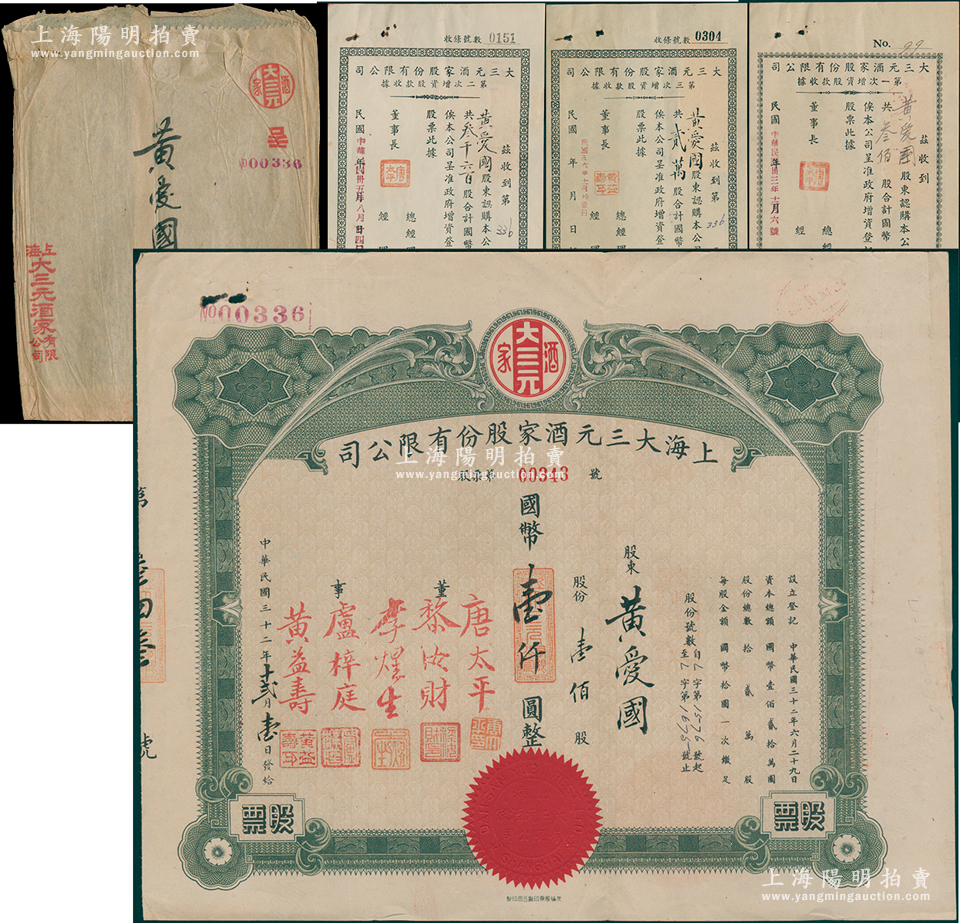 上海陽明拍賣
www.yangmingauction.com
大三元
酒家
No 00336
黃愛國
上海大三元酒家有限公司
收條號數 0151
大三元酒家股份有限公司
第二次增資股款收據
茲收到第
黃愛國 股東認購本公
共 叁千六百 股合計國幣
俟本公司呈准政府增資登
股票此據
董事長
總經
經
收條號數 0304
大三元酒家股份有限公司
第三次增資股款收據
茲收到第
黃愛國 股東認購本公
共 貳萬 股合計國幣
俟本公司呈准政府增資登
股票此據
董事長
民國 年 月
總經
經
No. 99
大三元酒家股份有限公司
第一次增資股款收據
茲收到
黃愛國 股東認購本公
共 叁佰 股合計國幣
俟本公司呈准政府增資登
股票此據
董事長
總經
經
No 00336
大三元
酒家
上海大三元酒家股份有限公司
00343 號
設立登記 中華民國三十二年六月二十九日
資本總額 國幣壹佰貳拾萬圓
股份總數 拾貳萬股
每股金額 國幣拾圓一次繳足
股份號數自
號起
至
號止
股東 黃愛國
股份 壹佰股
國幣壹仟圓整
董事
唐太平
黎汝財
李燿生
盧梓庭
黃益壽
中華民國三十二年十弍月壹日發給
第
叁四叁
號
股票
股票
上海陽明拍賣
www.yangmingauction.com
上海陽明拍賣
www.yangmingauction.com